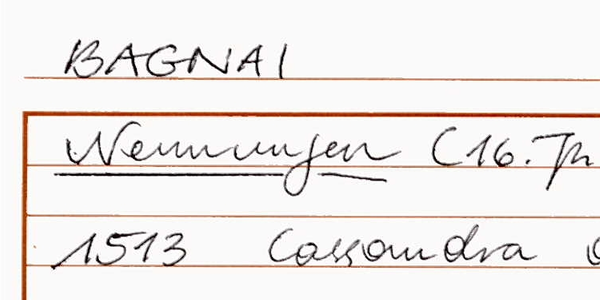 BAGNAI
Nennungen (16. Jh
1513 Cassandra